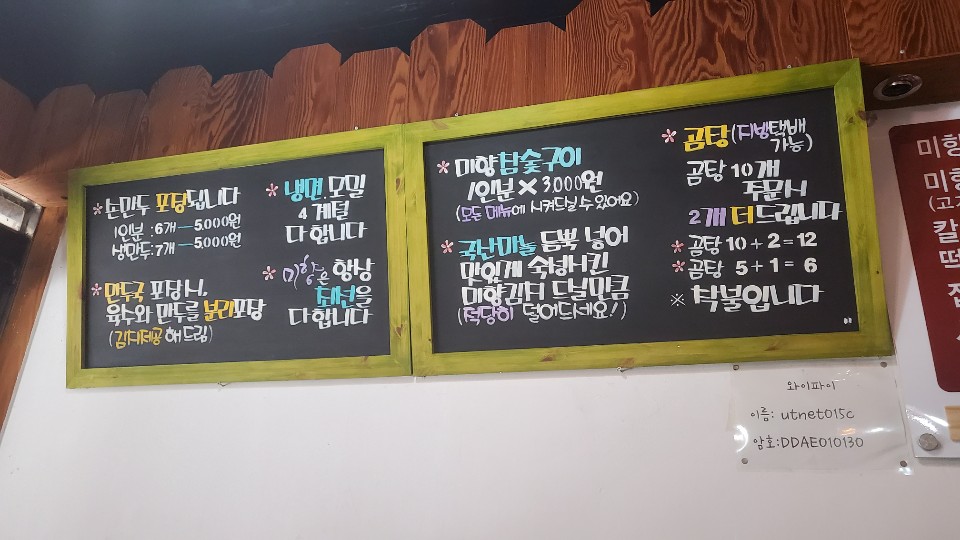 * 손만두 포장됩니다
1인분 : 6개 — 5,000원
생만두 : 7개 — 5,000원
* 만두국 포장시,
육수와 만두를 분리포장
(김치제공 해드림)
* 냉면, 모밀
4계절
다합니다
* 미향은 항상
최선을
다합니다
* 미향 참숯구이
1인분 × 3,000원
(모든 메뉴에 시켜드실 수 있어요)
* 국산마늘 듬뿍 넣어
맛있게 숙성시킨
미향김치 드실만큼
(적당히 덜어드세요!)
* 곰탕 (지방택배
가능)
곰탕 10개
주문시
2개 더 드립니다
* 곰탕 10 + 2 = 12
* 곰탕 5 + 1 = 6
※ 착불입니다
와이파이
이름: utnet015c
암호:DDAE010130
미향
미향
(고기
칼
떡
접